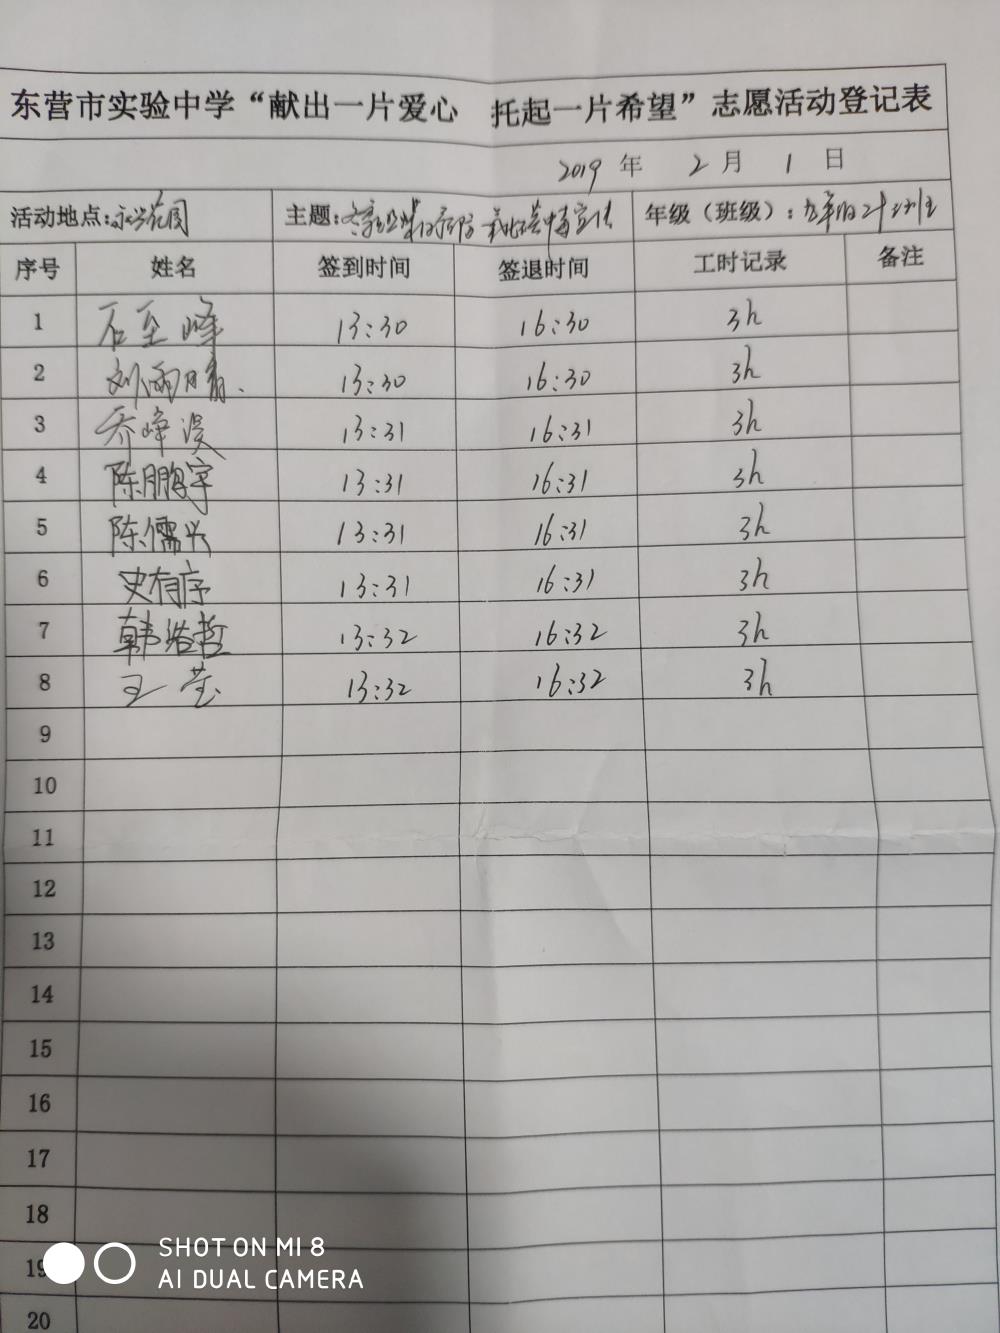 东营市实验中学“献出一片爱心 托起一片希望”志愿活动登记表
2019 年 2 月 1 日
活动地点：永兴花园 主题： 年级（班级）：九年级二十班
序号 姓名 签到时间 签退时间 工时记录 备注
1 石至峰 13:30 16:30 3h
2 刘雨晴. 13:30 16:30 3h
3 乔峰 13:31 16:31 3h
4 陈鹏宇 13:31 16:31 3h
5 陈儒兴 13:31 16:31 3h
6 史有序 13:31 16:31 3h
7 韩浩哲 13:32 16:32 3h
8 王莹 13:32 16:32 3h
9
10
11
12
13
14
15
16
17
18
19
20
SHOT ON MI 8
AI DUAL CAMERA